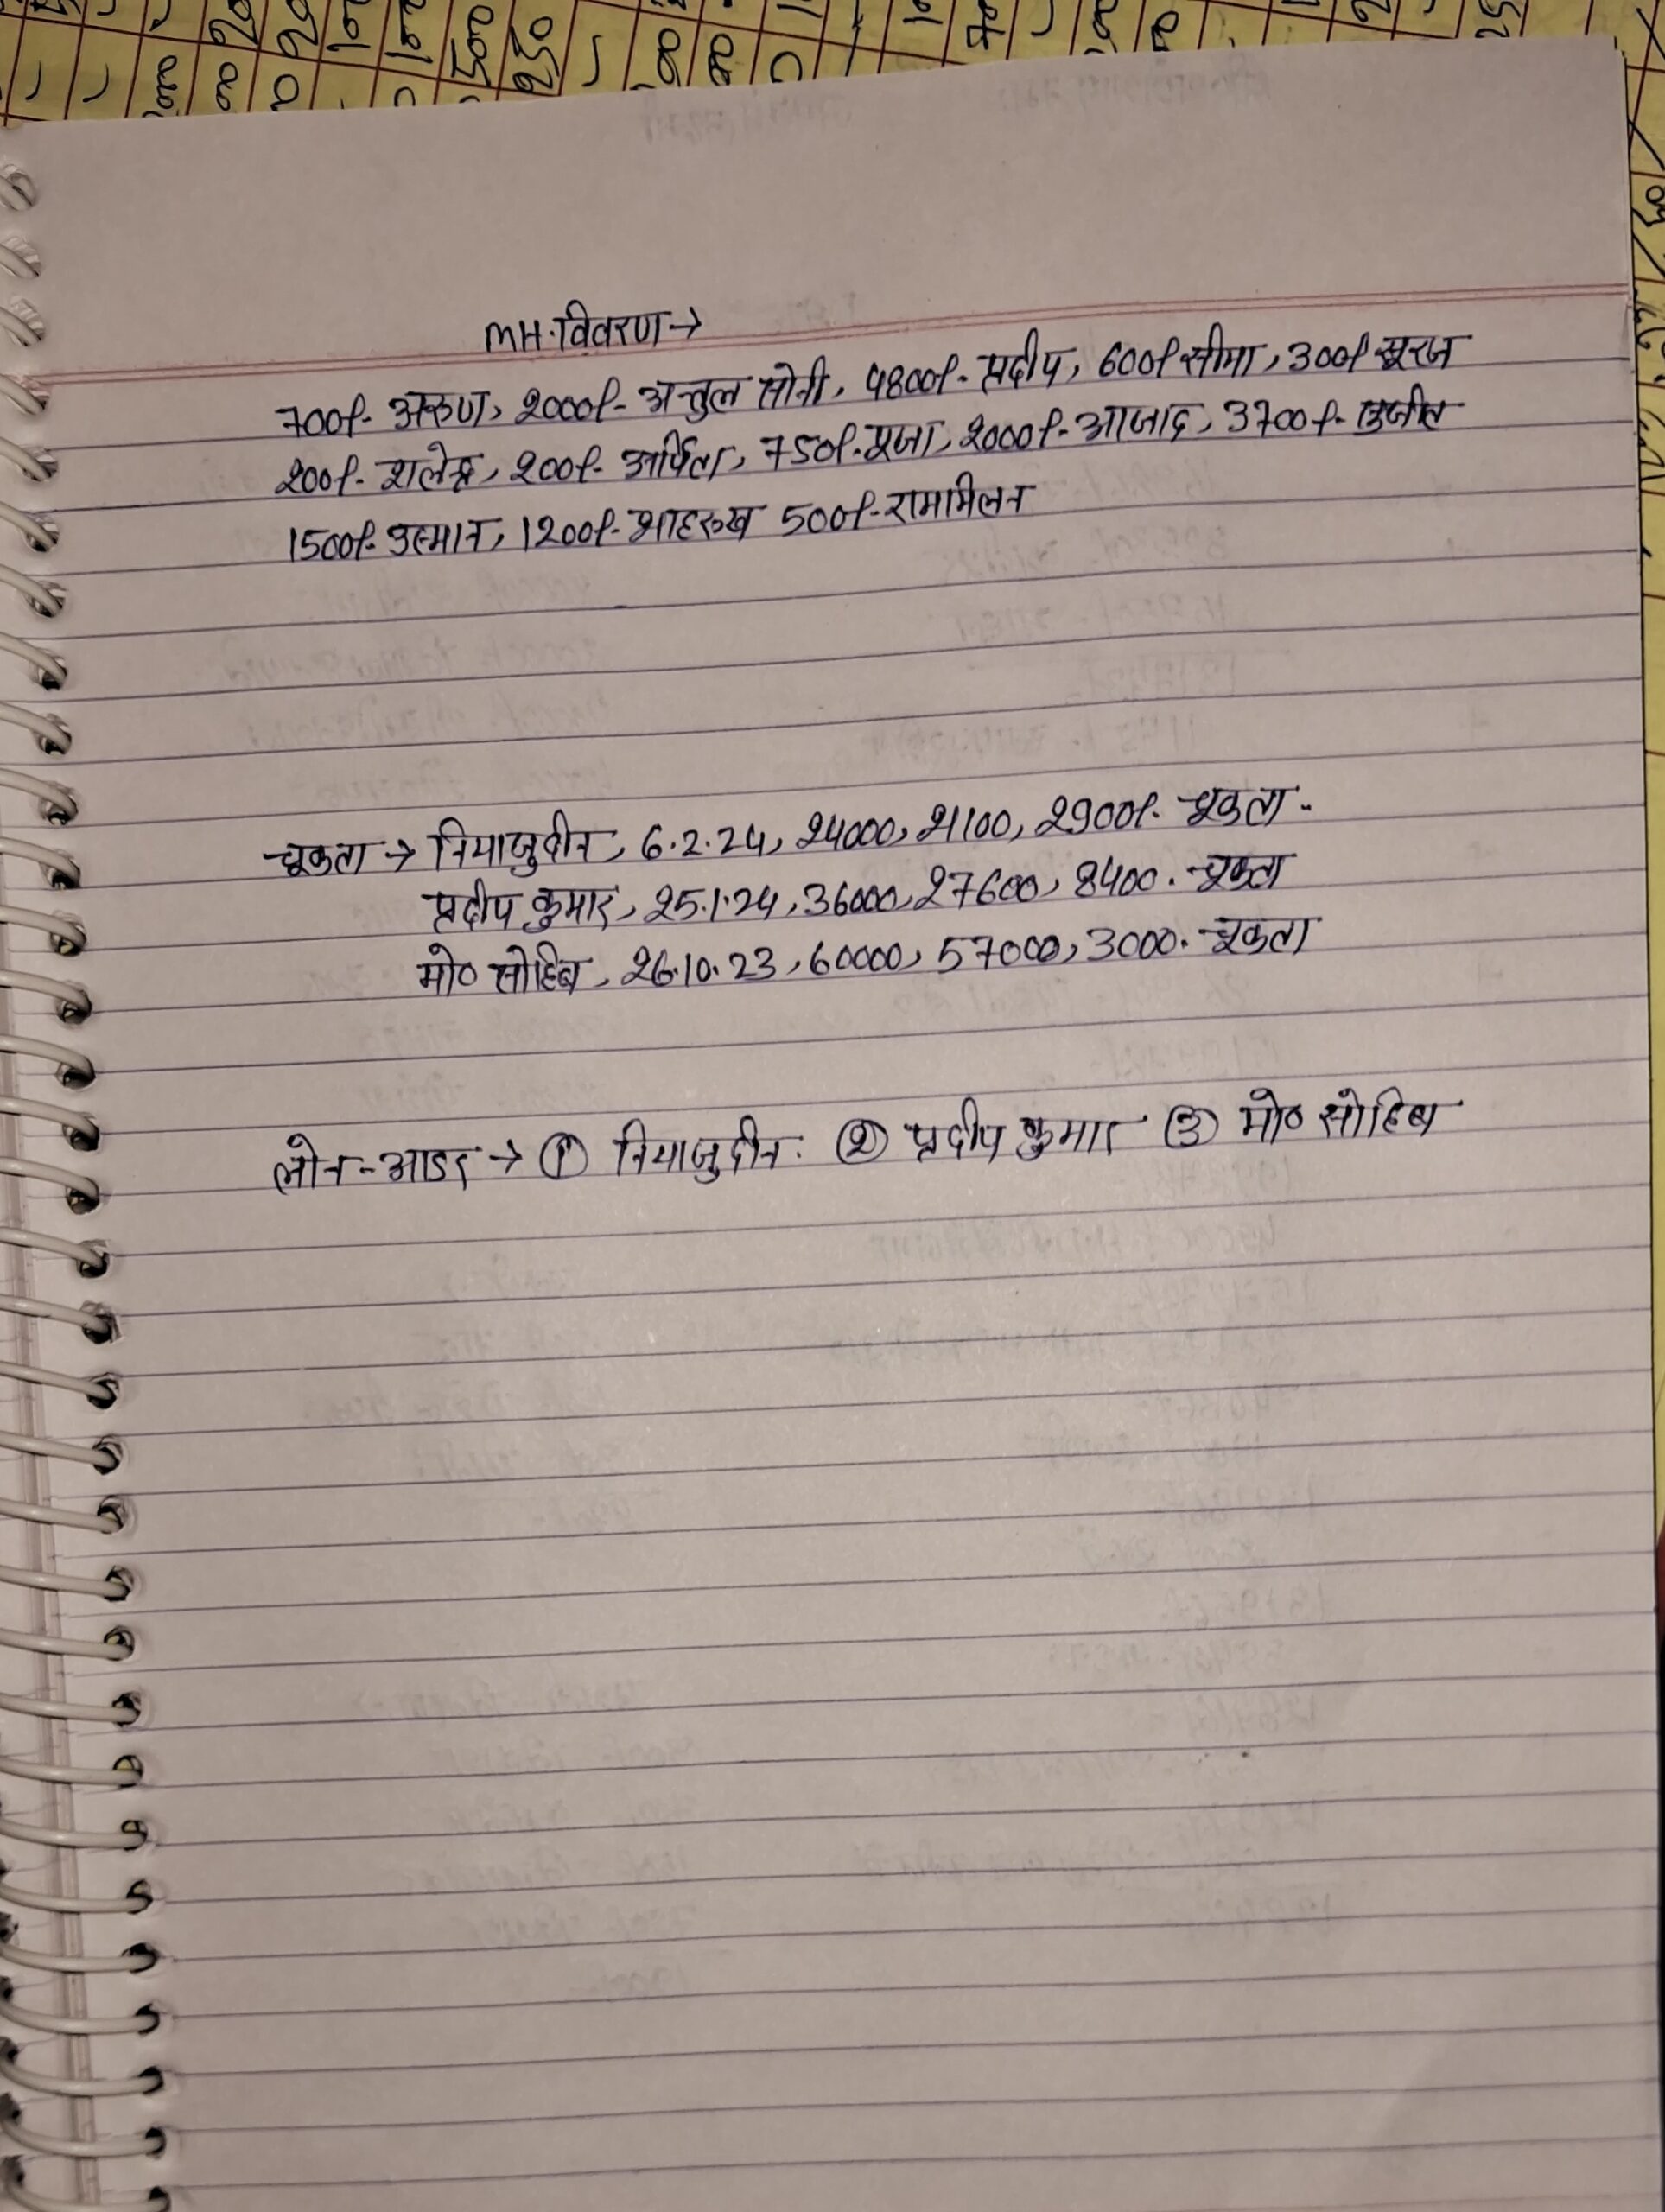 MH. विवरण →
700/- अरुण, 2000/- अतुल सोनी, 4800/- प्रदीप, 600/ सीमा, 300/ सूरज
200/- शलेन्द्र, 200/- अर्पिता, 750/- पूजा, 2000/- आजाद, 3700/-
1500/- उस्मान, 1200/- शाहरुख 500/- राममिलन
चूकता → नियाजुदीन, 6.2.24, 24000, 21100, 2900/- चूकता -
प्रदीप कुमार, 25.1.24, 36000, 27600, 8400. चूकता
मो० सोहिब, 26.10.23, 60000, 57000, 3000. चूकता
लोन-आडर → ① नियाजुदीन. ② प्रदीप कुमार ③ मो० सोहिब